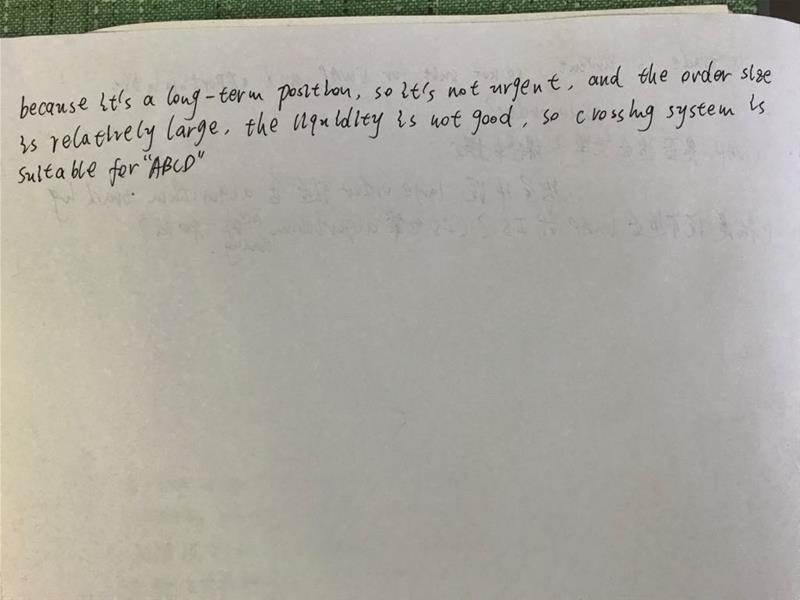 because it's a long-term position, so it's not urgent, and the order size
is relatively large, the liquidity is not good, so crossing system is
suitable for "ABCD"